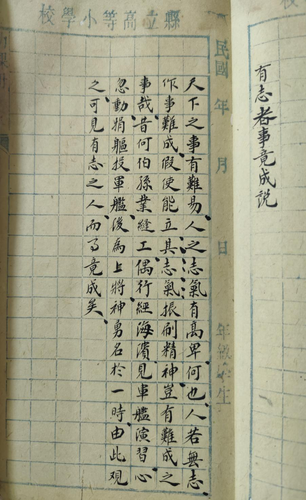 縣立高等小學校
民國 年 月 日 年級 學生
有志者事竟成説
天下之事有難易人之志氣有高卑何也人若無志
作事難成假使能立其志氣振刷精神豈有難成之
事哉昔何伯孫業縫工偶行經海濱見軍艦演習心
忽動捐軀投軍艦後為上將神勇名於一時由此觀
之可見有志之人而事竟成矣